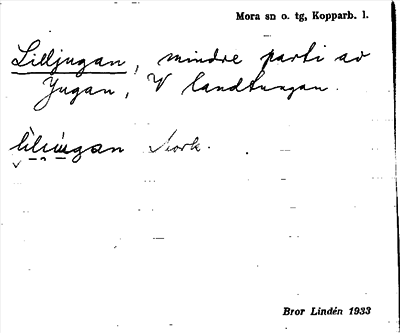 Mora sn o. tg, Kopparb. l.
Lilljugan, mindre parti av
Jugan, V landtungan.
Bror Lindén 1933